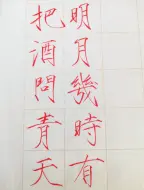 明月幾時有
把酒問青天